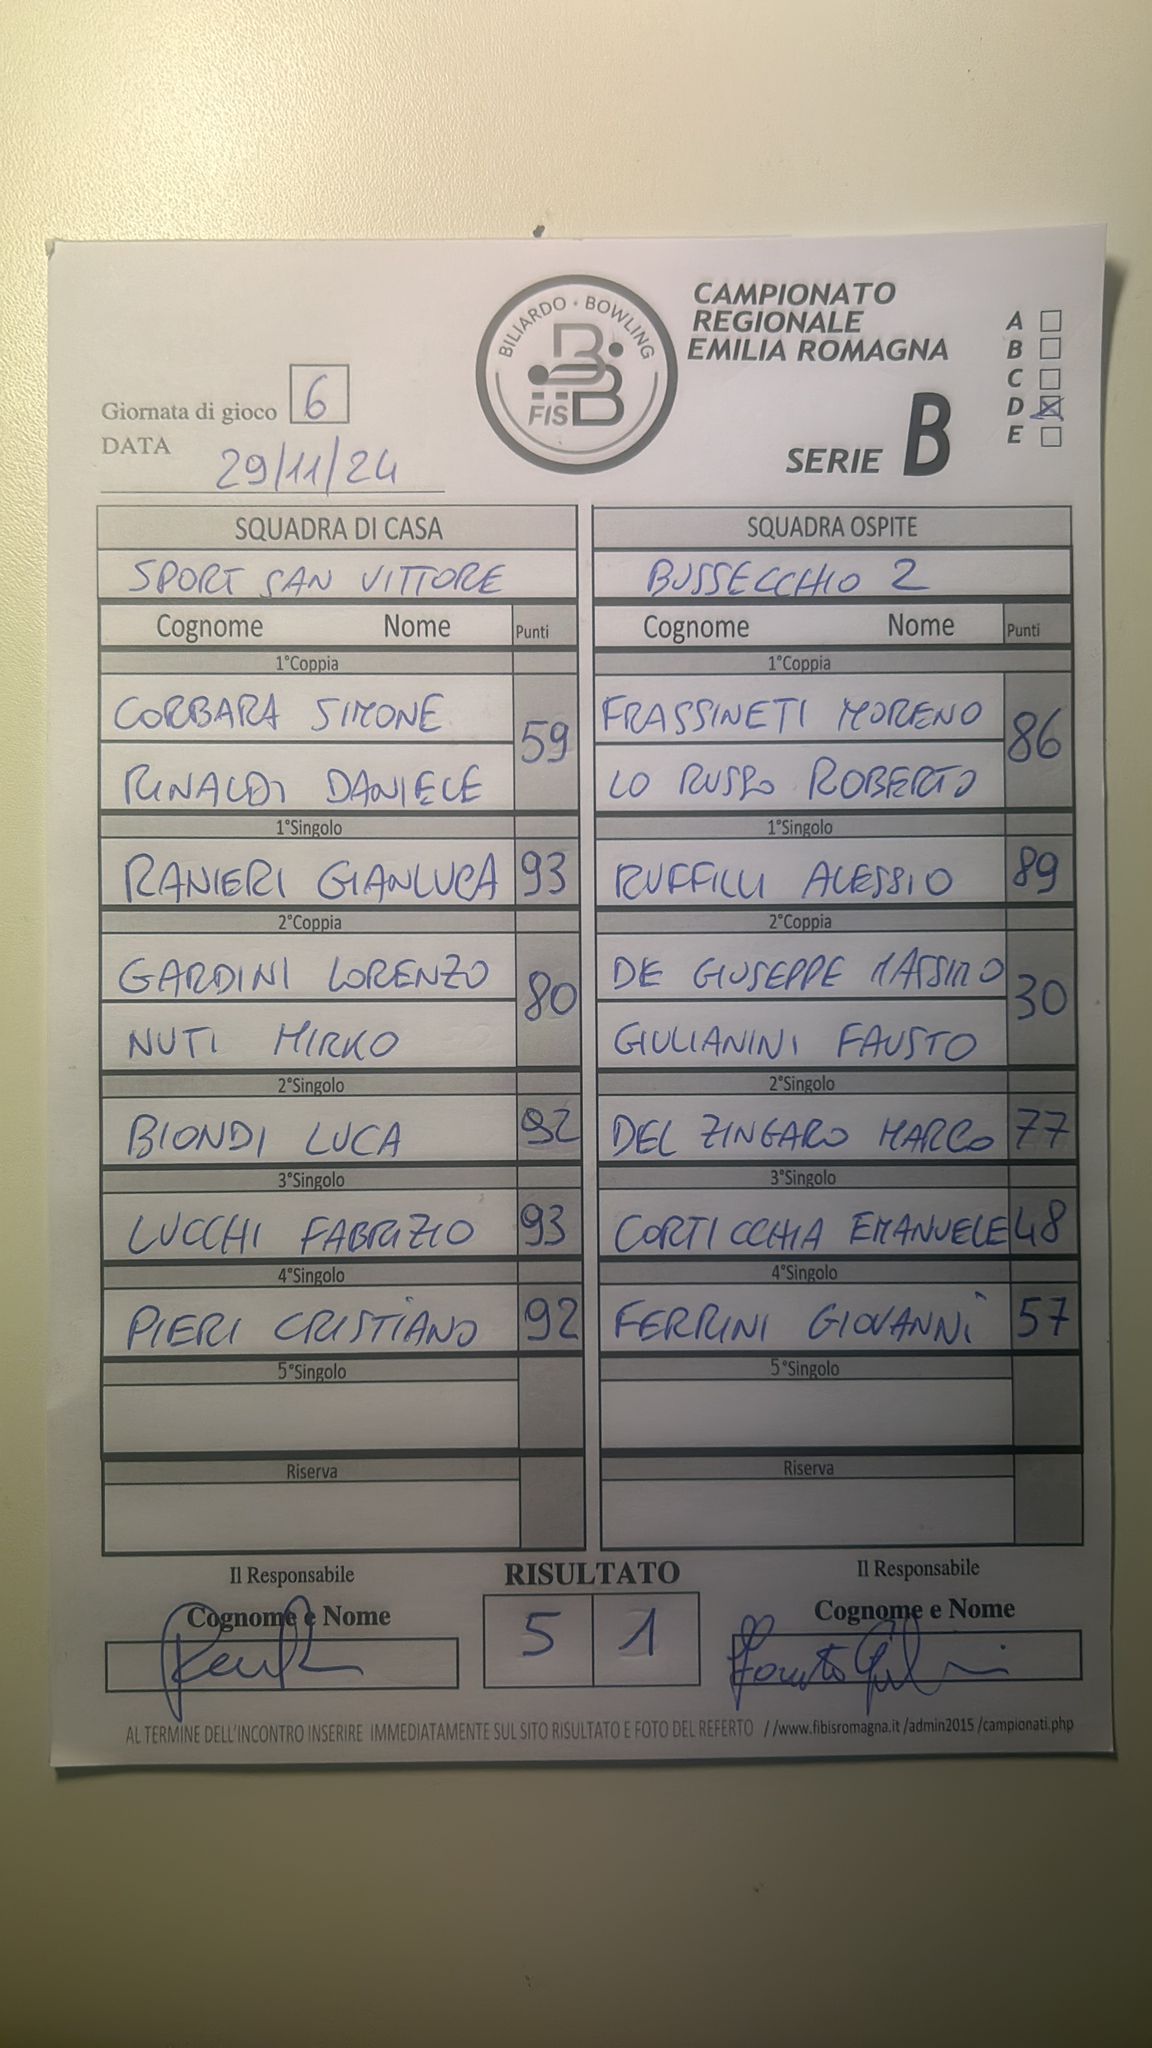 BILIARDO · BOWLING
FISBB
CAMPIONATO
REGIONALE
EMILIA ROMAGNA
SERIE B
A
B
C
D X
E
Giornata di gioco 6
DATA 29/11/24
SQUADRA DI CASA
SPORT SAN VITTORE
Cognome Nome Punti
1°Coppia
CORBARA SIMONE
59
RINALDI DANIELE
1°Singolo
RANIERI GIANLUCA 93
2°Coppia
GARDINI LORENZO
80
NUTI MIRKO
2°Singolo
BIONDI LUCA 92
3°Singolo
LUCCHI FABRIZIO 93
4°Singolo
PIERI CRISTIANO 92
5°Singolo
Riserva
SQUADRA OSPITE
BUSSECCHIO 2
Cognome Nome Punti
1°Coppia
FRASSINETI MORENO
86
LO RUSSO ROBERTO
1°Singolo
RUFFILLI ALESSIO 89
2°Coppia
DE GIUSEPPE MASSIMO
30
GIULIANINI FAUSTO
2°Singolo
DEL ZINGARO MARCO 77
3°Singolo
CORTICCHIA EMANUELE 48
4°Singolo
FERRINI GIOVANNI 57
5°Singolo
Riserva
Il Responsabile
Cognome e Nome
RISULTATO
5 1
Il Responsabile
Cognome e Nome
AL TERMINE DELL'INCONTRO INSERIRE IMMEDIATAMENTE SUL SITO RISULTATO E FOTO DEL REFERTO //www.fibisromagna.it /admin2015 /campionati.php